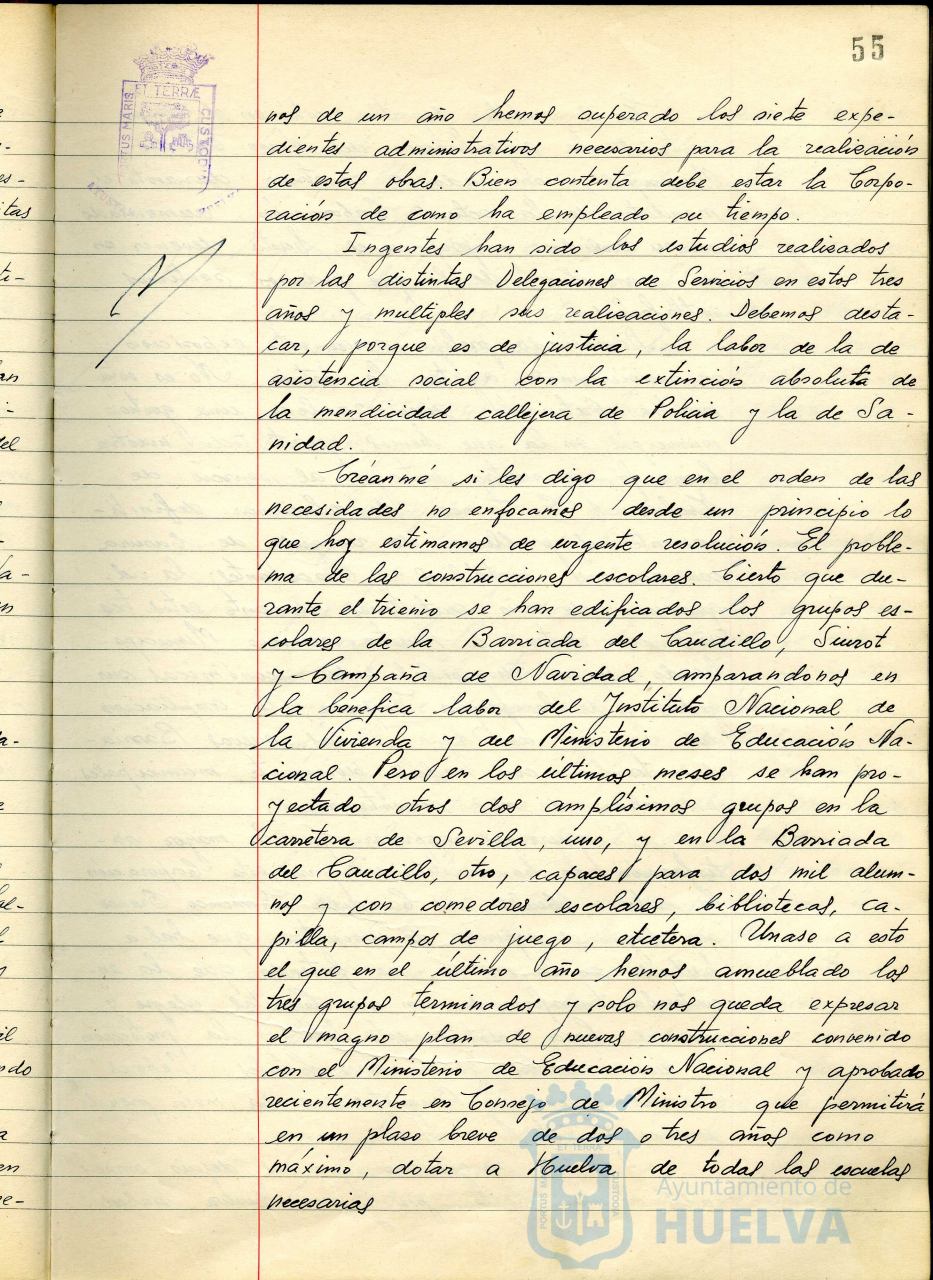 55
ET TERRÆ
nos de un año hemos superado los siete expe-
dientes administrativos necesarios para la realización
de estas obras. Bien contenta debe estar la Corpo-
ración de como ha empleado su tiempo.
Ingentes han sido los estudios realizados
por las distintas Delegaciones de Servicios en estos tres
años y multiples sus realizaciones. Debemos desta-
car, porque es de justicia, la labor de la de
asistencia social con la extinción absoluta de
la mendicidad callejera de Policia y la de Sa-
nidad.
Créanmé si les digo que en el orden de las
necesidades no enfocamos desde un principio lo
que hoy estimamos de urgente resolución. El proble-
ma de las construcciones escolares. Cierto que du-
rante el trienio se han edificados los grupos es-
colares de la Barriada del Caudillo, Siurot
y Campaña de Navidad, amparandonos en
la benefica labor del Instituto Nacional de
la Vivienda y del Ministerio de Educación Na-
cional. Pero en los últimos meses se han pro-
yectado otros dos amplísimos grupos en la
carretera de Sevilla, uno, y en la Barriada
del Caudillo, otro, capaces para dos mil alum-
nos y con comedores escolares, bibliotecas, ca-
pilla, campos de juego, etcetera. Unase a esto
el que en el último año hemos amueblado los
tres grupos terminados y solo nos queda expresar
el magno plan de nuevas construcciones convenido
con el Ministerio de Educación Nacional y aprobado
recientemente en Consejo de Ministro que permitirá
en un plazo breve de dos o tres años como
máximo, dotar a Huelva de todas las escuelas
necesarias
Ayuntamiento de
HUELVA